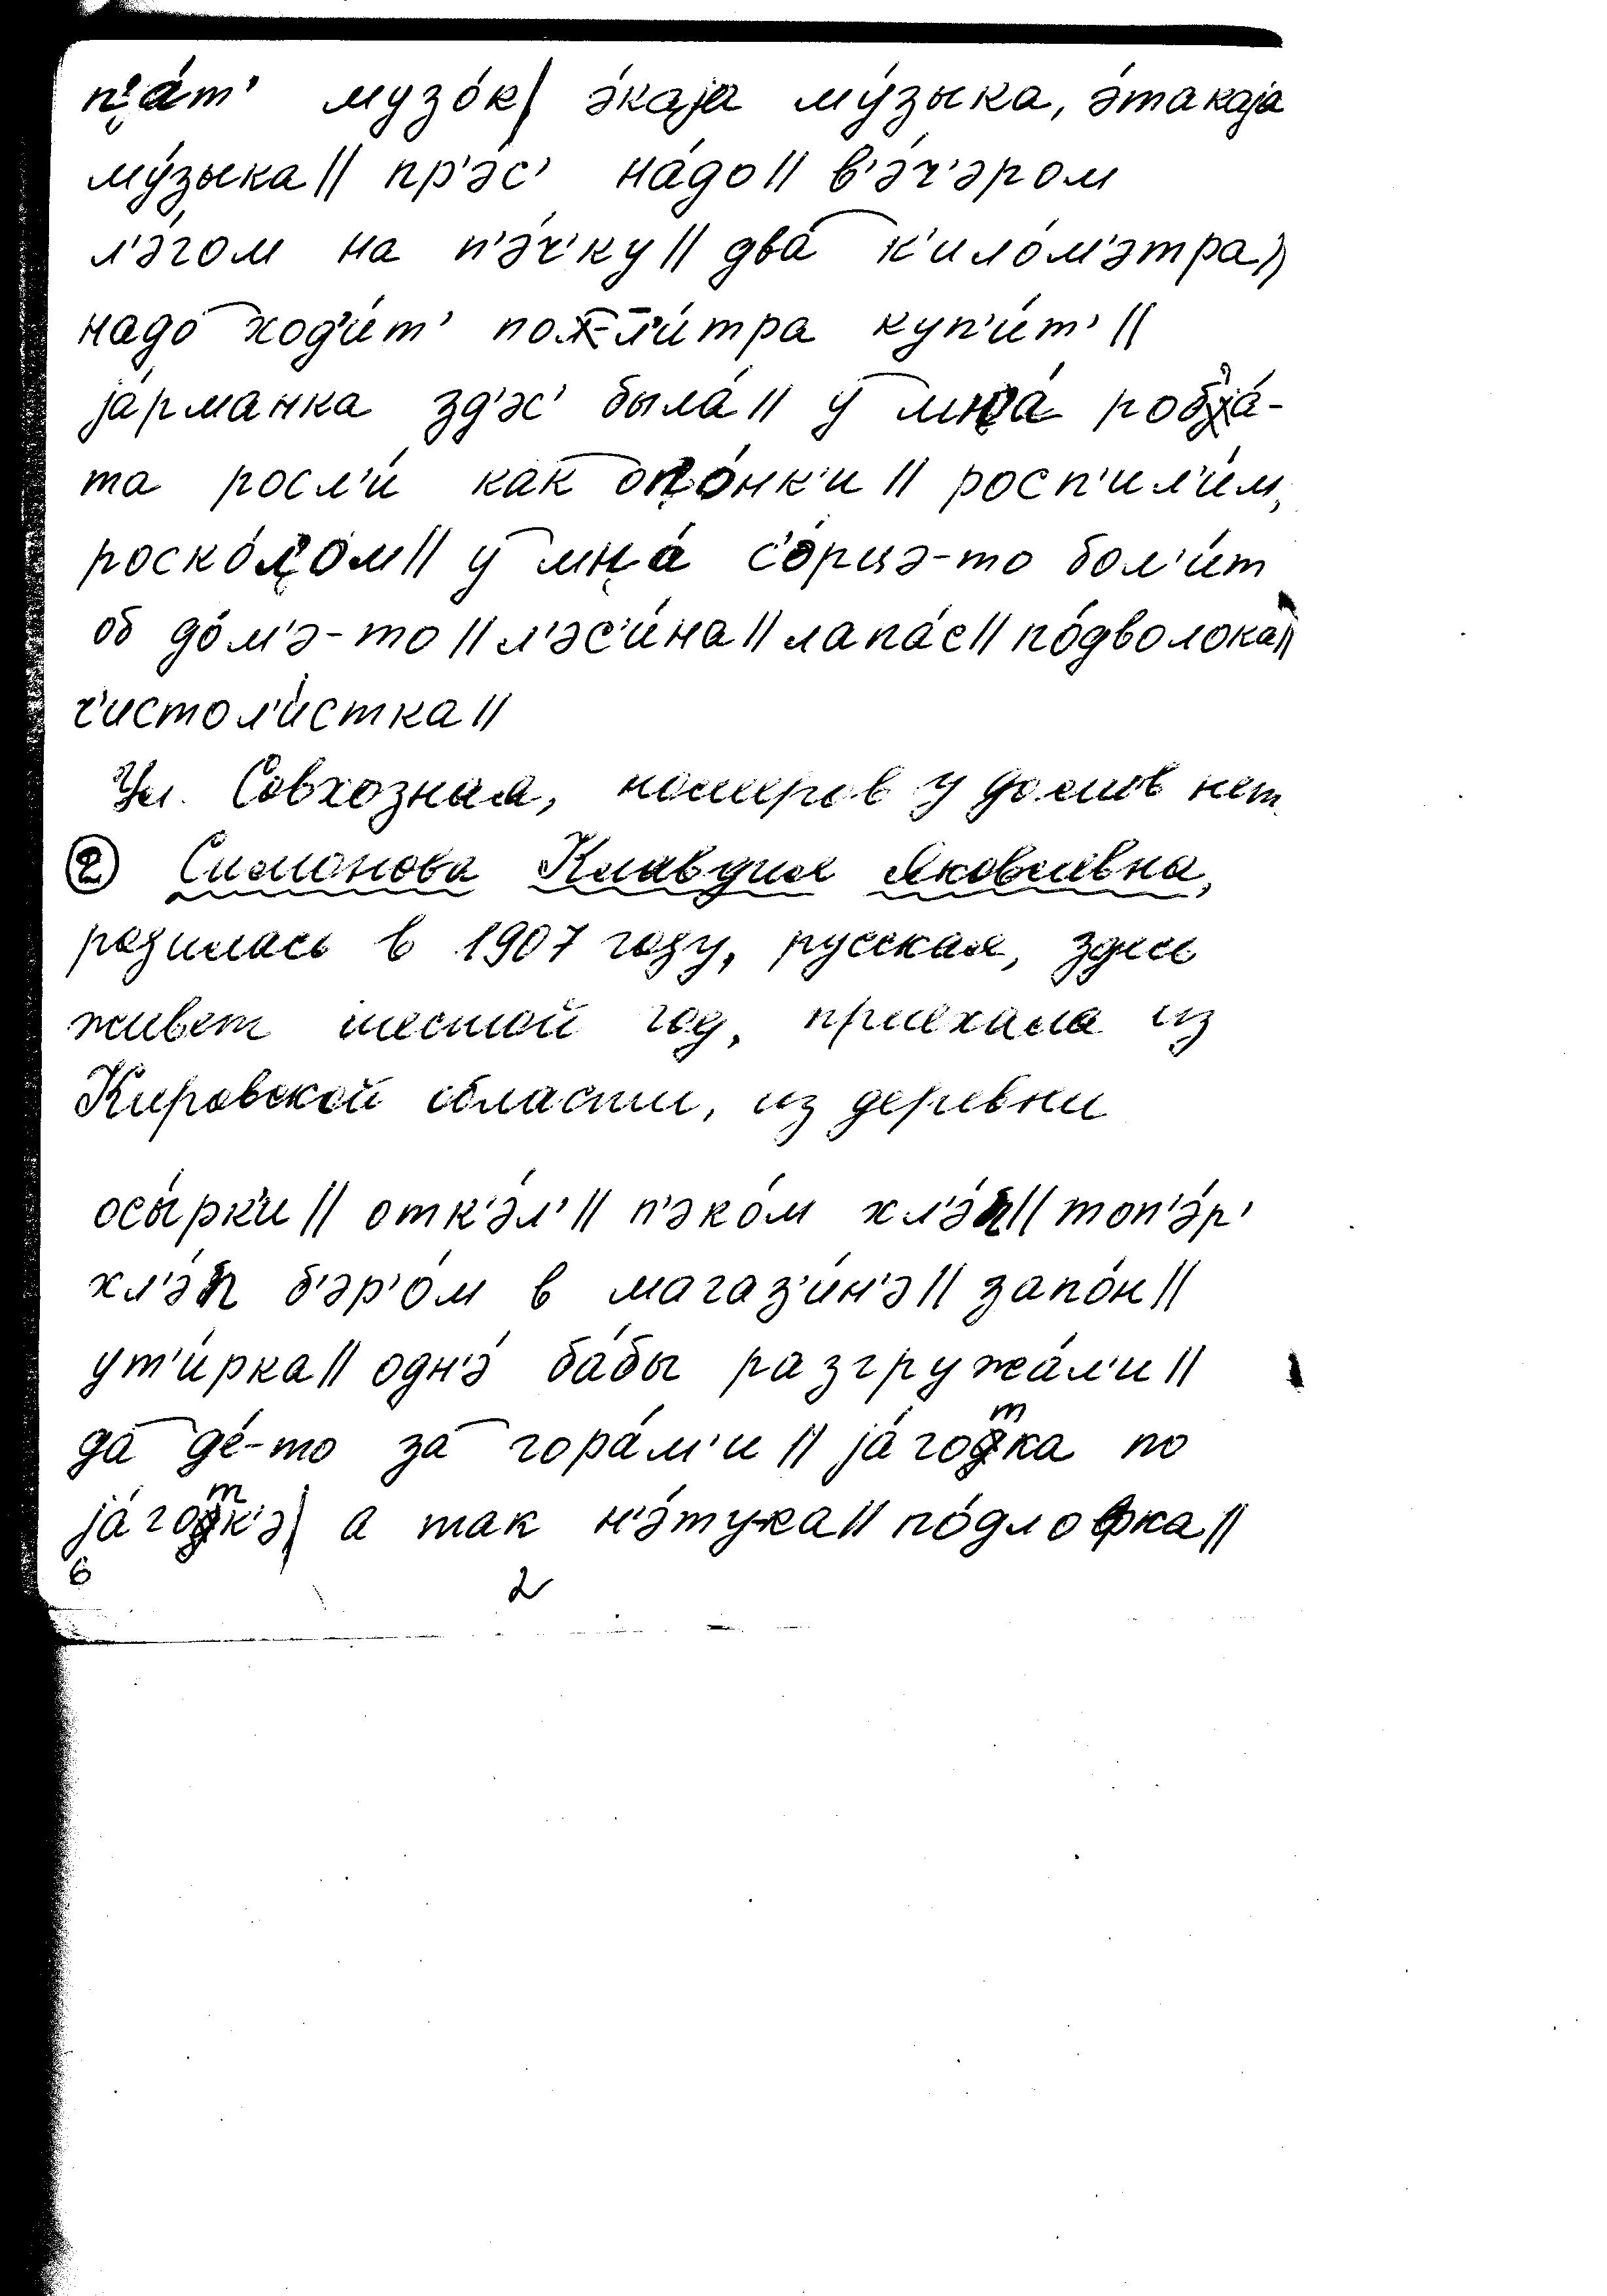 п'а́т' музо́к| э́каjа му́зыка, э́такаjа
му́зыка|| пр'э́с' на́до|| в'э́ч'эром
л'э́гом на п'э́ч'ку|| два к'ило́м'этра||
надо ход'и́т' пол-л'и́тра куп'и́т'||
jа́рманка зд'э́с' была́|| у мн'а́ роб'а́-
та росл'и́ как оп'о́нк'и|| росп'ил'и́м,
роско́л'ом|| у мн'а́ с'о́рцэ-то бол'и́т
об до́м'э-то|| л'эс'и́на|| лапа́с|| по́дволока||
ч'истол'и́стка||
Ул. Совхозная, номеров у домов нет
② Симонова Клавдия Яковлевна,
родилась в 1907 году, русская, здесь
живет шестой год, приехала из
Кировской области, из деревни
осы́рк'и|| отк'э́л'|| п'эко́м хл'э́п|| топ'э́р'
хл'э́п б'эр'о́м в магаз'и́н'э|| запо́н||
ут'и́рка|| одн'э́ ба́бы разгружа́л'и||
да де́-то за гора́м'и|| jа́готка по
jа́готк'э| а так н'э́тука|| по́длофка||
6 2